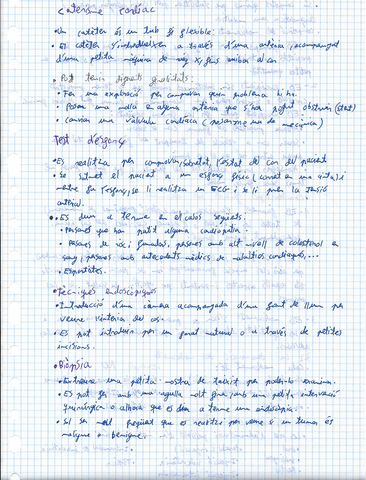 Cateterisme cardíac
• Un catèter és un tub fi flexible.
• El catèter s'introdueix a través d'una artèria, acompanyat
d'una petita màquina de raig x, fins arribar al cor.
• Pot tenir següent finalitats:
• Fer una exploració per comprovar quin problema hi ha.
• Posar una molla en alguna artèria que s'hagi pogut obstruir (stent)
• Canviar una vàlvula cardíaca (
Test d'esforç
• Es realitza per comprovar l'estat del cor del pacient
• Se sotmet el pacient a un esforç físic (corret en una cinta) i
mentre fa l'esforç, se li realitza un ECG i se li pren la tensió
arterial.
• Es duen a terme en els casos següents:
• Persones que han patit alguna cardiopatia.
• Persones de risc; fumadors, persones amb alt nivell de colesterol en
sang, persones amb antecedents mèdics de malalties cardíaques,...
• Esportistes.
• Tècniques endoscòpiques
• Introducció d'una càmera acompanyada d'una font de llum per
veure l'interior del cos.
• Es pot introduir per un forat natural o a través de petites
incisions.
• Biòpsia
• Extreure una petita mostra de teixit per poder-lo examinar.
• Es pot fer amb una agulla molt fina, amb una petita intervenció
quirúrgica o alhora que es duu a terme una endoscòpia.
• Sol ser molt freqüent que es realitzi per veure si un tumor és
maligne o benigne.